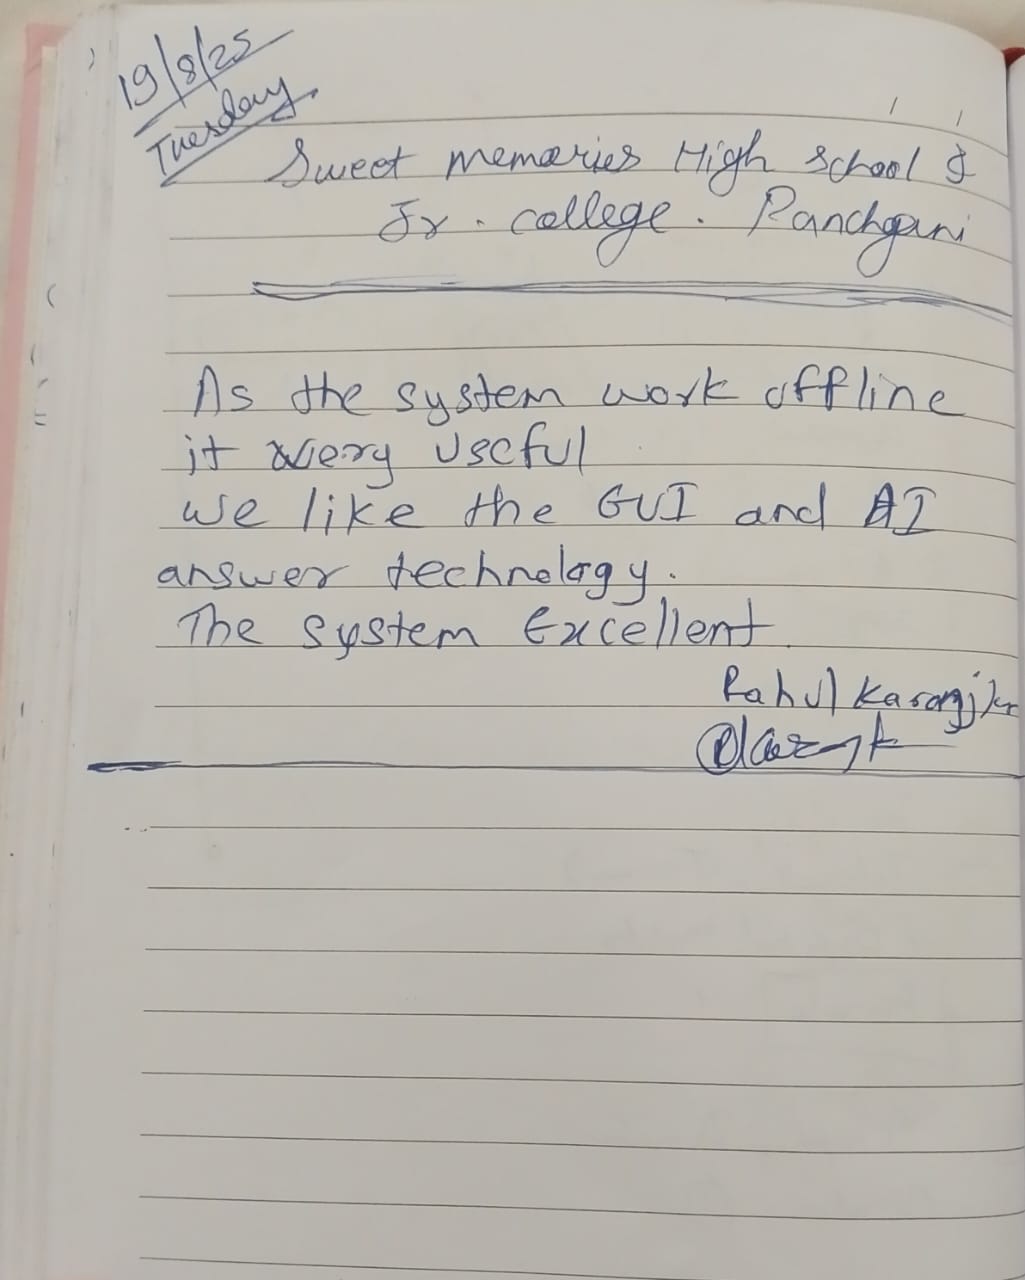 19/8/25
Tuesday
Sweet memories High School &
Jr. college. Panchgani
As the system work offline
it very useful
we like the GUI and AI
answer technology.
The system Excellent
Rahul